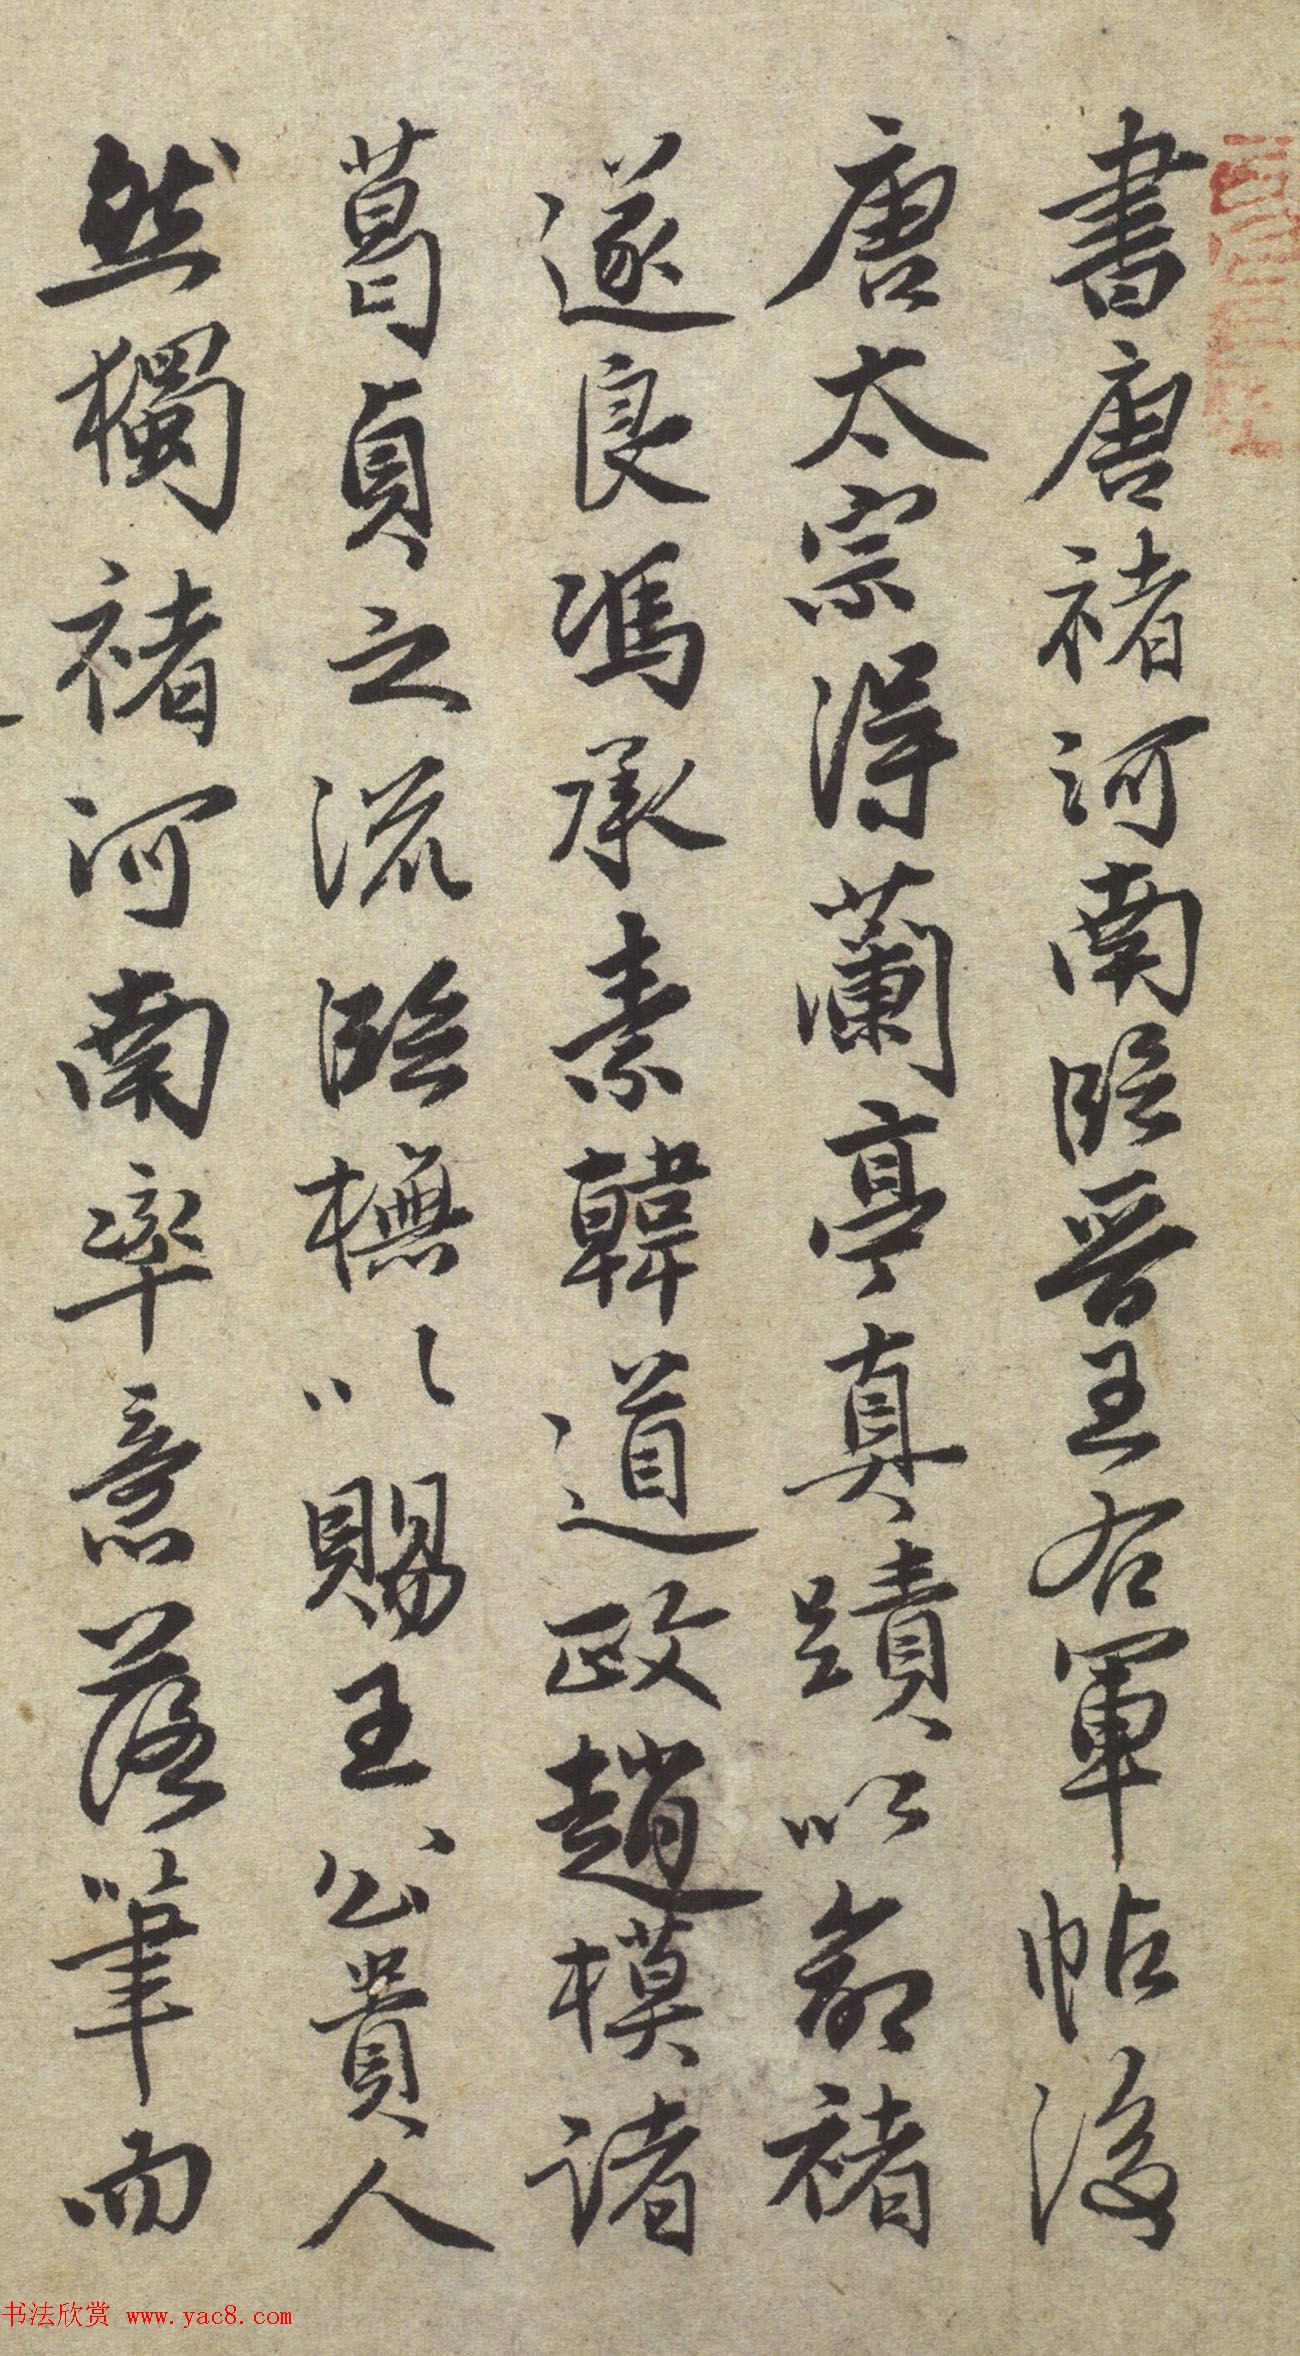 書唐褚河南臨晉王右軍帖後
唐太宗得蘭亭真蹟以命褚
遂良馮承素韓道政趙模諸
葛貞之流臨橅以賜王公貴人
然獨褚河南率意落筆而
书法欣赏 www.yac8.com